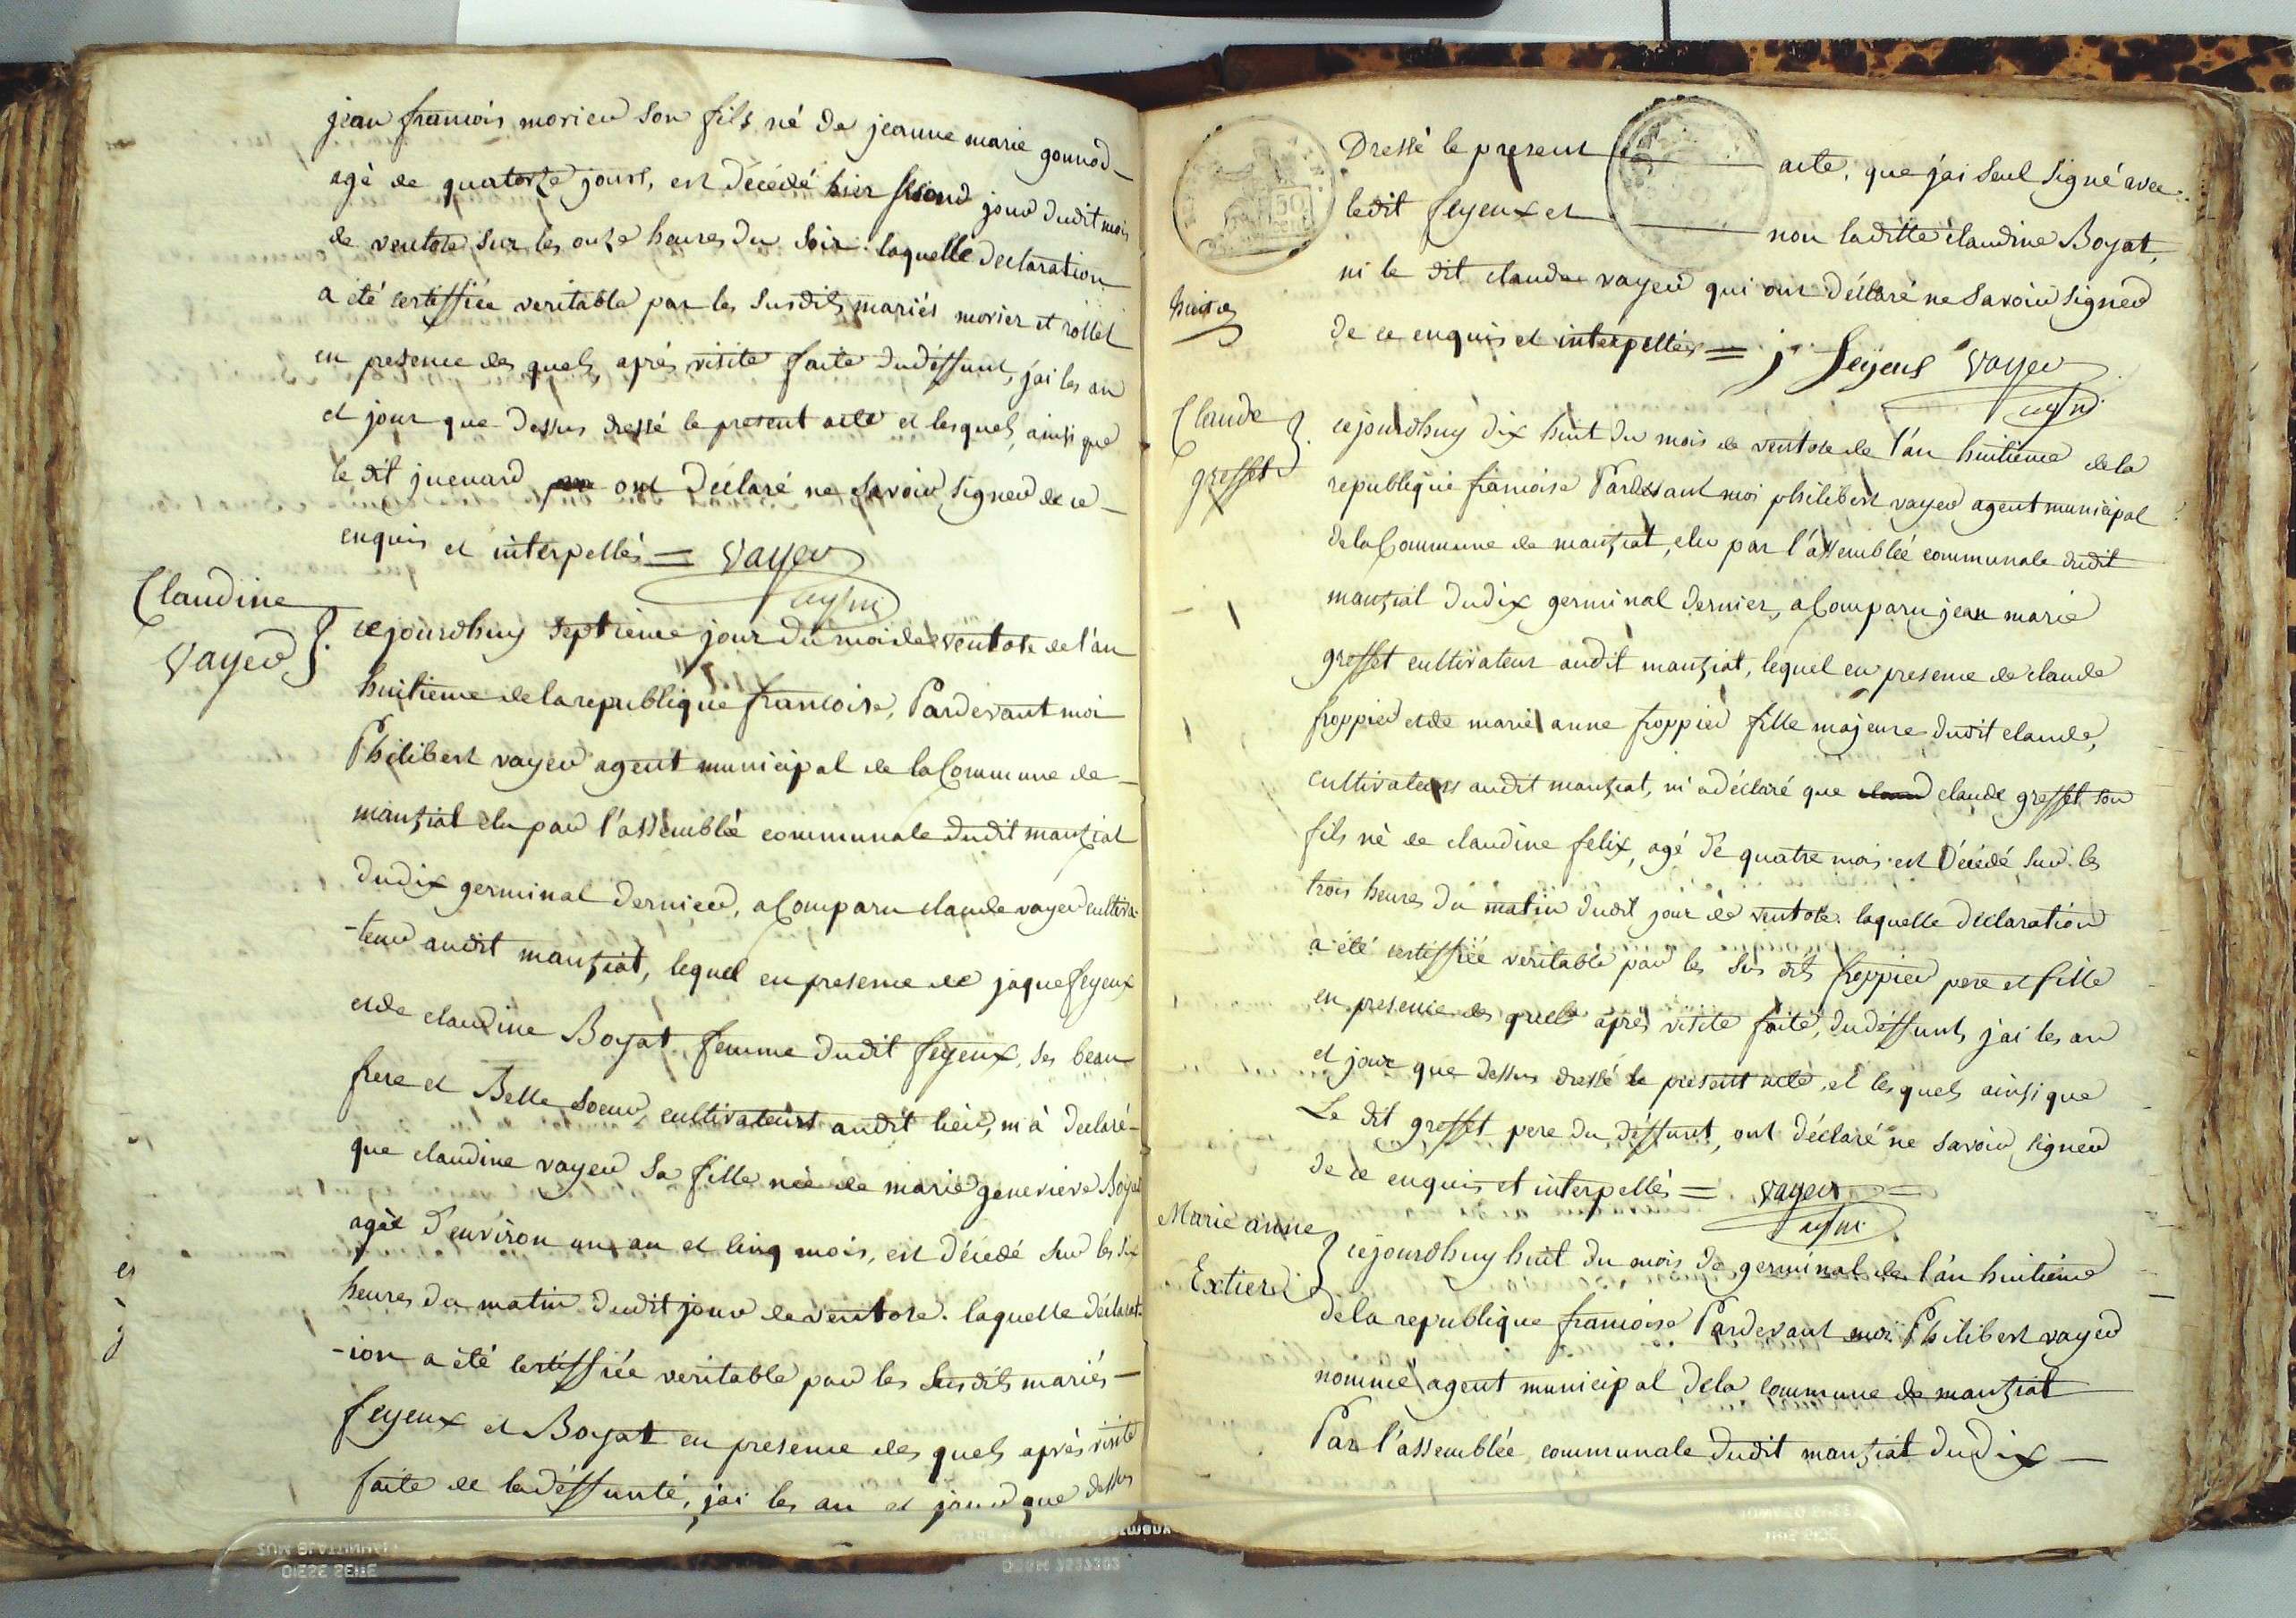 jean francois morier son fils né de jeanne marie gonnod
agé de quatorze jours, est décédé hier second jour dudit mois
de ventose sur les onze heures du soir. laquelle declaration
a été certiffiée veritable par les susdits mariés morier et rollet
en presence des quels, aprés visite faite du diffunt, j'ai les an
et jour que dessus dressé le present acte et lesquels, ainsi que
le dit juenard ont déclaré ne savoir signer de ce
enquis et interpellés = Vayer
agt m
Claudine
Vayer
cejourdhuy septieme jour du mois de ventose de l'an
huitieme de la republique francoise, Pardevant moi
Philibert vayer agent municipal de la Commune de
manziat elu par l'assemblée communale dudit manziat
du dix germinal dernier, a Comparu claude vayer cultiva-
-teur audit manziat, lequel en presence de jaque feyeux
et de claudine Boyat femme dudit feyeux, ses beau
frere et Belle soeur, cultivateurs audit lieu, m'à declaré
que claudine vayer sa fille née de marie genevieve Boyat
agée d'environ un an et cinq mois, est décedé sur les dix
heures du matin dudit jour de ventose. laquelle déclarat-
-ion a été certiffiée veritable par les susdits mariés
feyeux et Boyat en presence des quels aprés visite
faite de la déffunte, j'ai les an et jour que dessus
Dressé le present acte, que j'ai seul signé avec
ledit feyeux et non laditte claudine Boyat,
ni le dit claude vayer qui ont déclaré ne savoir signer
de ce enquis et interpellés = j feyeux Vayer
agt m
Claude
greffet
cejourdhuy dix huit du mois de ventose de l'an huitieme de la
republique francoise Pardevant moi philibert vayer agent municipal
de la Commune de manziat, elu par l'assemblée communale dudit
manziat du dix germinal dernier, a Comparu jean marie
greffet cultivateur audit manziat, lequel en presence de claude
froppier et de marie anne froppier fille majeure dudit claude,
cultivateurs audit manziat, m'a déclaré que claude greffet son
fils né de claudine felix, agé de quatre mois est Décédé sur les
trois heures du matin dudit jour de ventose. laquelle declaration
a été certiffiée veritable par les sus dits froppier pere et fille
en presence des quels aprés visite faite, du déffunt, j'ai les an
et jour que dessus dressé le present acte, et lesquels ainsi que
Le dit greffet pere du déffunt, ont déclaré ne savoir signer
de ce enquis et interpellés = vayer =
agt m
Marie anne
Extier
cejourdhuy huit du mois de germinal de l'an huitiéme
de la republique francoise Pardevant moi Philibert vayer
nommé agent municipal de la commune de manziat
Par l'assemblée communale dudit manziat du dix